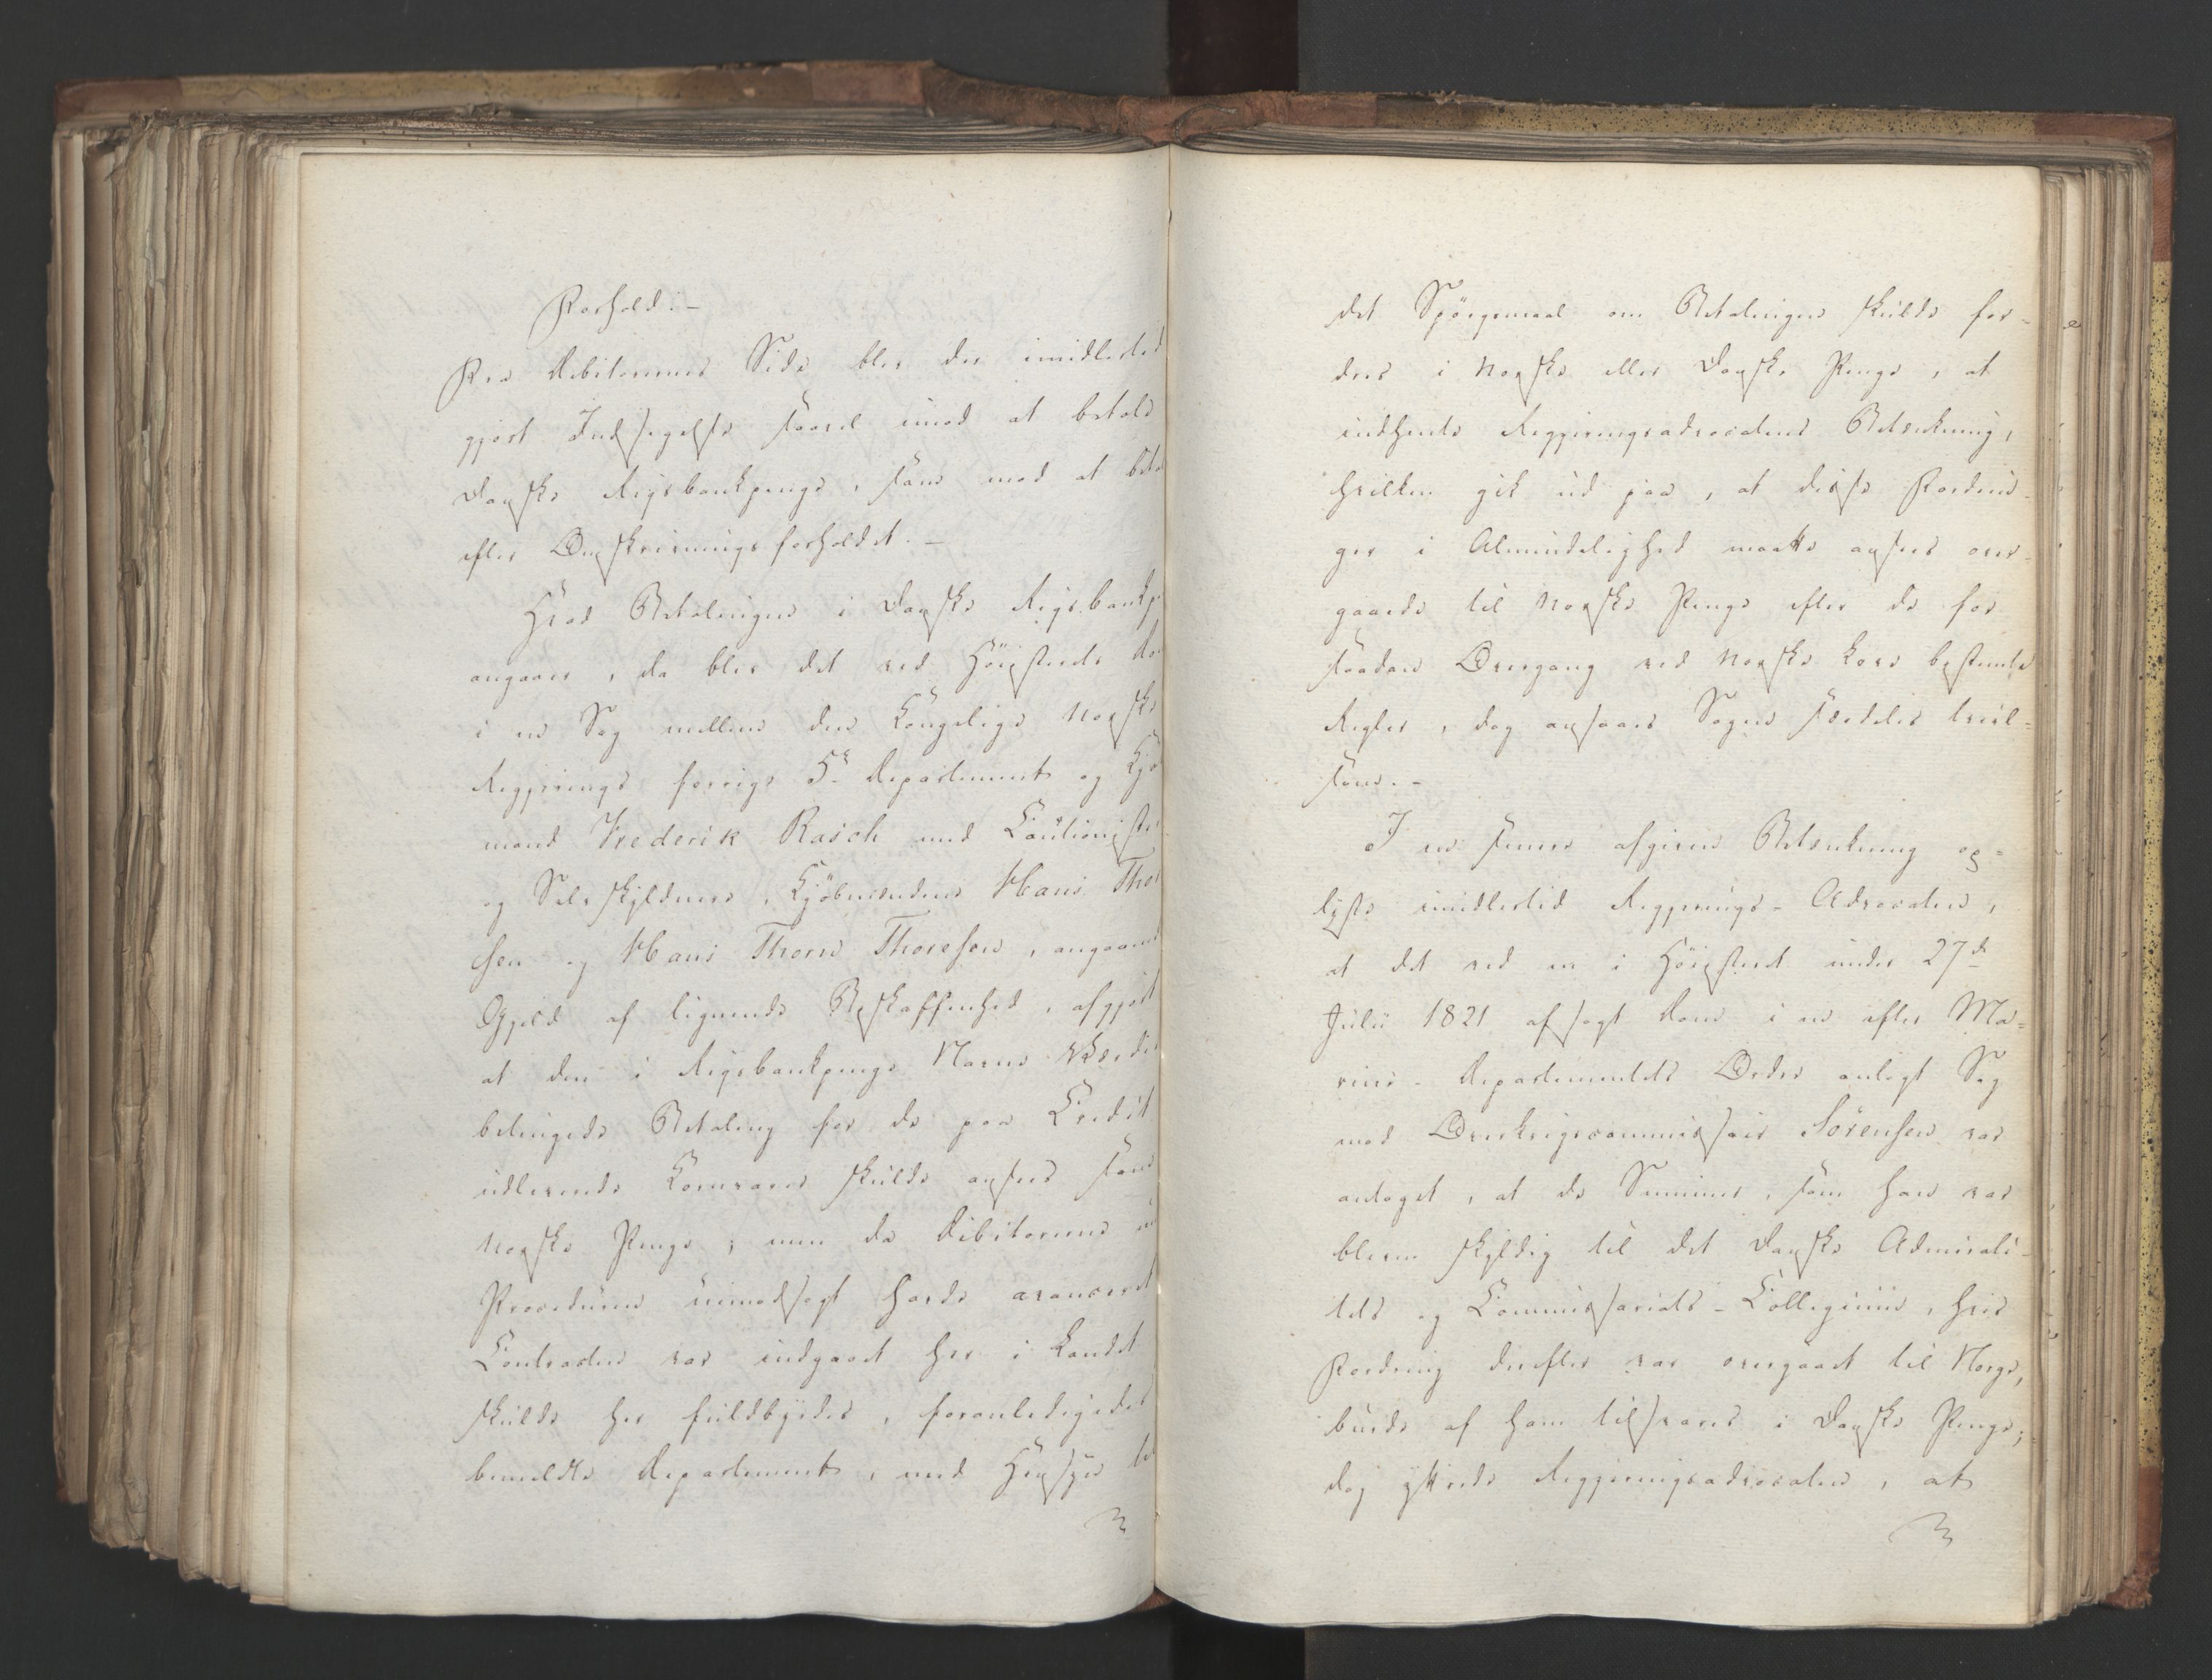 Forhold:-
Fra Debitorernes Side blev der imidlertid
gjort Indsigelse saavel imod at betale
Danske Rigsbankpenge, som mod at beta
efter Omskrivningsforholdet.-
Hvad Betalingen i Danske Rigsbankp
angaaer, da blev det ved Höiesterets Do
i en Sag mellem den Kongelige Norske
Regjerings forrige 5te Departement og Kjö
mand Frederik Rasch med Cautionister
og Selvskyldnere, Kjöbmændene Hans Thor
sen og Hans Thorn Thoresen, angaaende
Gjeld af lignende Beskaffenhed, afgjort
at den i Rigsbankpenge Navne Værdie
betingede Betaling for de paa Credit
udleverede Kornvarer skulde ansees som
Norske Penge; men da Debitorerne
Proceduren uimodsagt havde avanceret
Contracten var indgaaet her i Landet
skulde her fuldbyrdes, foranledigedes
bemeldte Departement, med Hensyn til
det Spörgsmaal om Betalingen skulde for-
dres i Norske eller Danske Penge, at
indhente Regjeringsadvocatens Betænkning,
hvilken gik ud paa, at disse Fordrin-
ger i Almindelighed maatte ansees over-
gaaede til Norske Penge efter de for
saadan Overgang ved Norske Love bestemte
Regler, dog ansaaes Sagen særdeles tvivl-
som.-
I en senere afgiven Betænkning op-
lyste imidlertid Regjerings-Advocaten,
at det ved en i Höiesteret under 27de
Julii 1821 afsagt Dom i en efter Ma-
rine-Departementets Ordre anlagt Sag
mod Overkrigscommissair Sörensen var
antaget, at de Summer, som han var
bleven skyldig til det Danske Admirali-
tets og Commissariats-Collegium, hvis
Fordring derefter var overgaaet til Norge,
burde af ham tilsvares i Danske Penge;
dog yttrede Regjeringsadvocaten, at